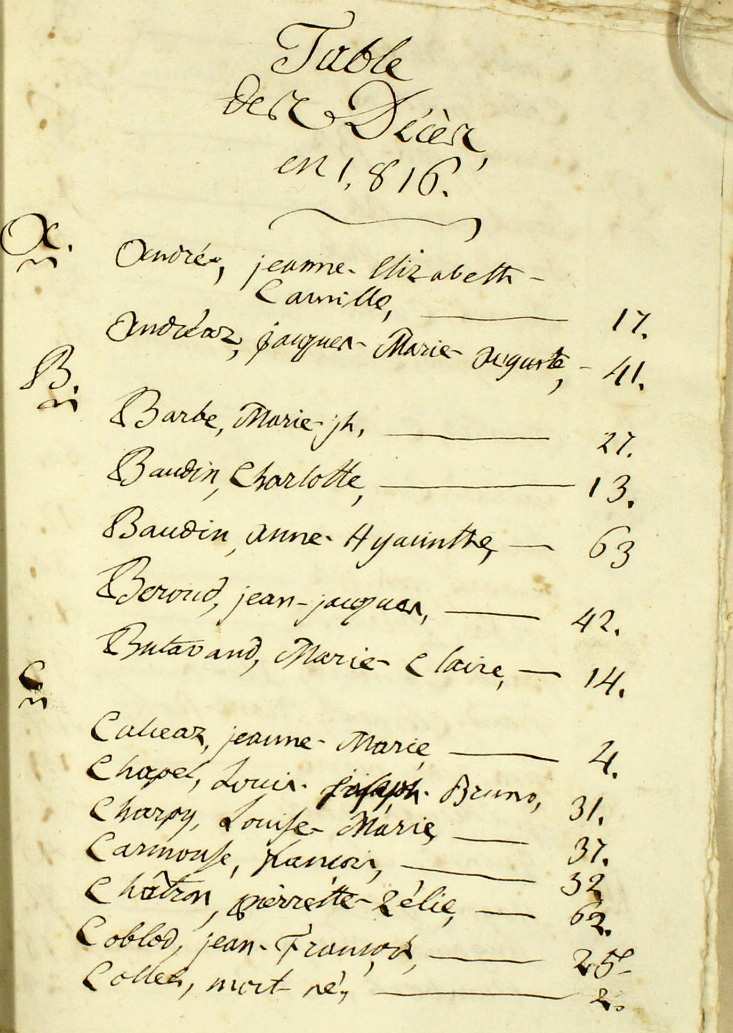 Table
des Décès,
en 1,816.
A.
André, jeanne-Elizabeth-
Camille, 17.
Andréaz, jacques-Marie-Auguste, - 41.
B.
Barbe, Marie-jh, 27.
Baudin, Charlotte, 13.
Baudin, anne-Hyacinthe, 63
Beroud, jean-jacques, 42.
Butavand, Marie-Claire, 14.
C
jeanne-Marie, 4.
Chapel, Louis-joseph-Bruno, 31.
Charpy, Louise-Marie, 37.
Carmouse, francois, 32
Châtron, pierrette-Zélie, 62.
Coblod, jean-François, 25
Collet, mort-né, 2.